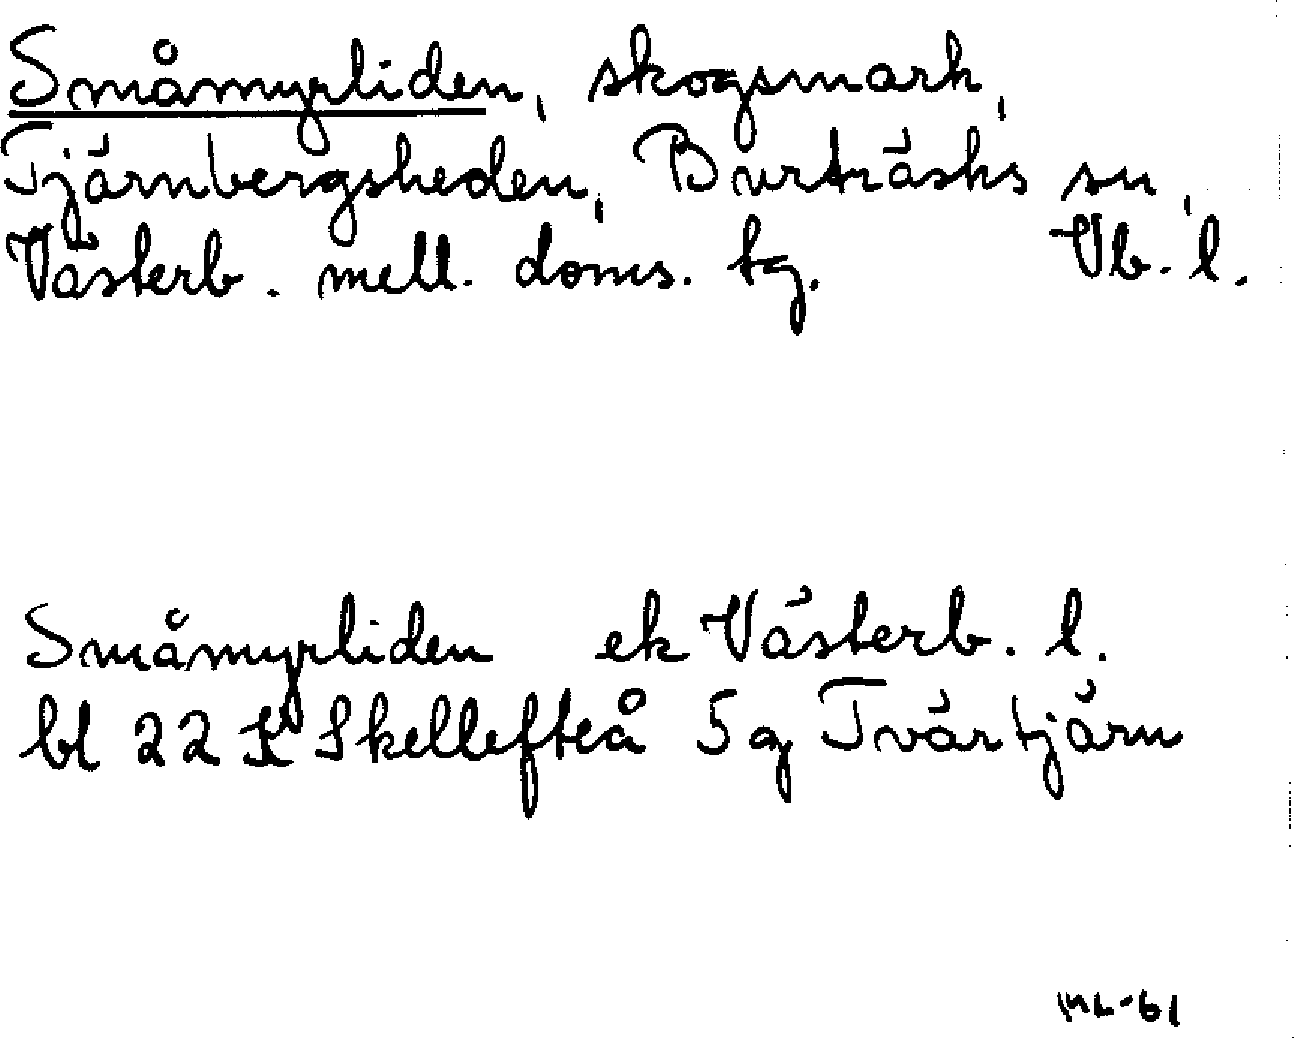 Småmyrliden, skogsmark,
Tjärnbergsheden, Burträsks sn,
Västerb. mell. doms. tg. Vb. l.
Småmyrliden ek Västerb. l.
bl 22 K Skellefteå 5 g Tvärtjärn
ML-61